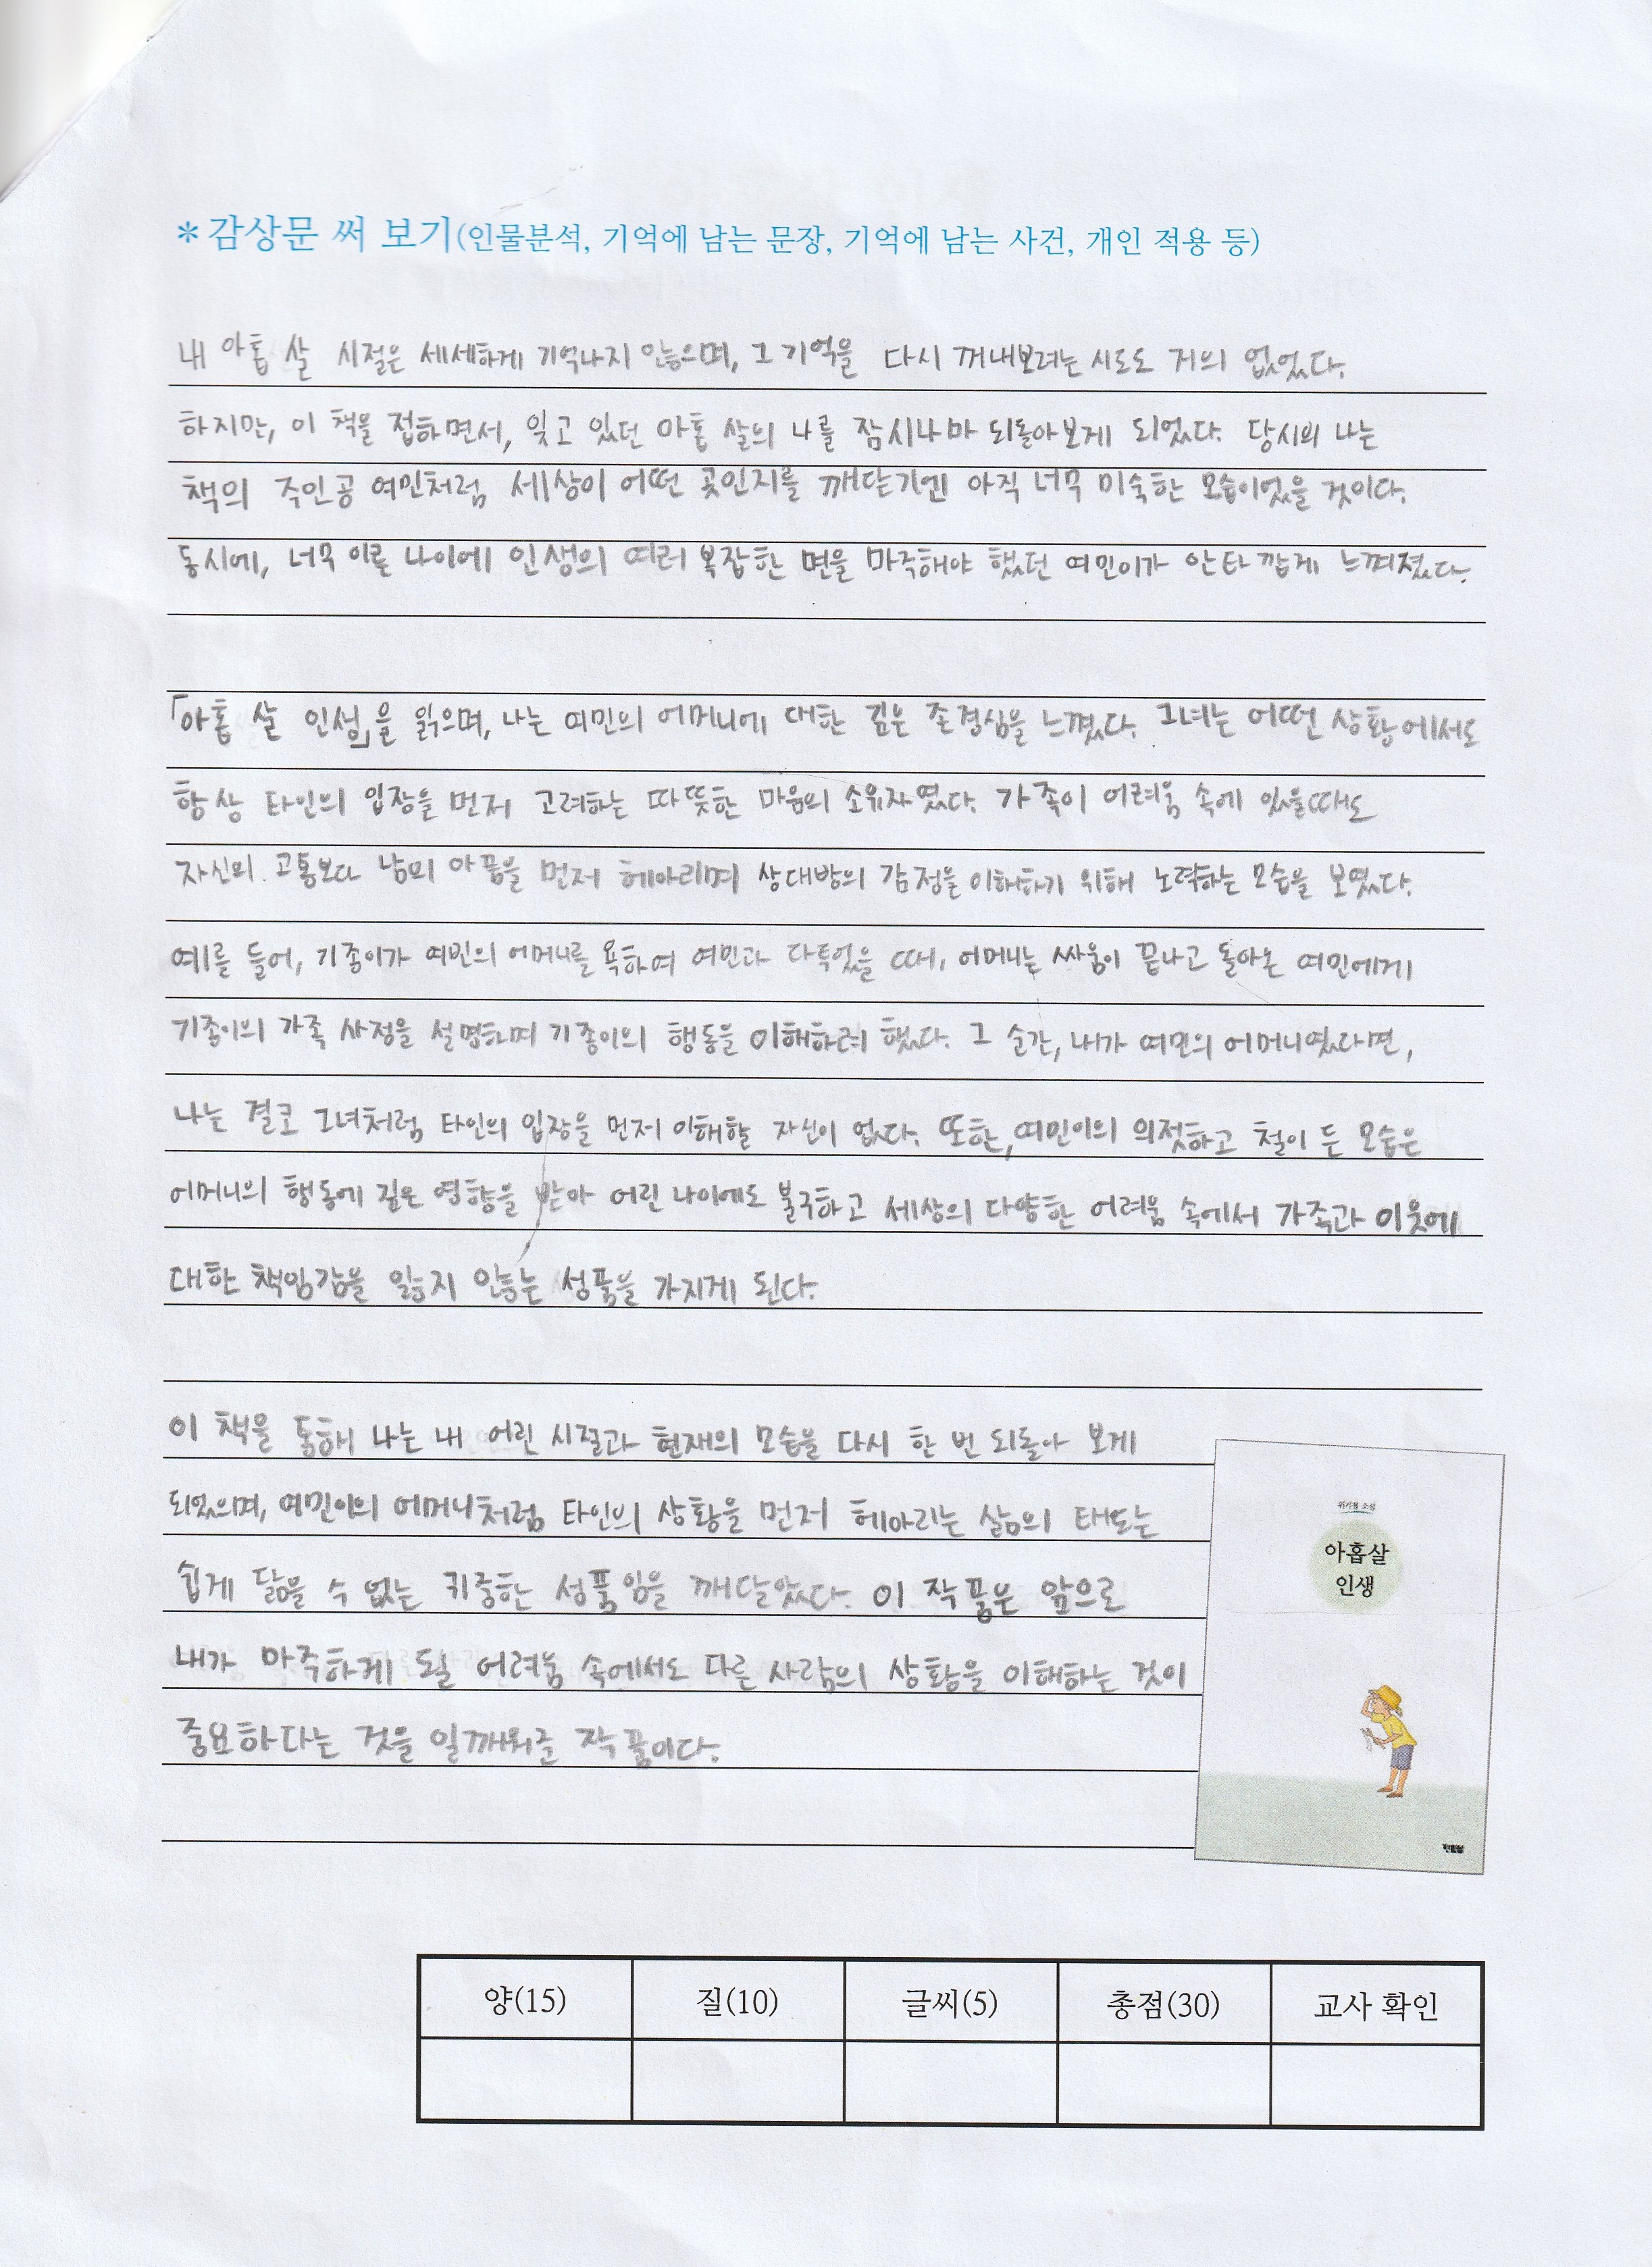 *감상문 써 보기(인물분석, 기억에 남는 문장, 기억에 남는 사건, 개인 적용 등)
내 아홉 살 시절은 세세하게 기억나지 않으며, 그 기억을 다시 꺼내보려는 시도도 거의 없었다.
하지만, 이 책을 접하면서, 잊고 있던 아홉 살의 나를 잠시나마 되돌아보게 되었다. 당시의 나는
책의 주인공 여민처럼 세상이 어떤 곳인지를 깨닫기엔 아직 너무 미숙한 모습이었을 것이다.
동시에, 너무 이른 나이에 인생의 여러 복잡한 면을 마주해야 했던 여민이가 안타깝게 느껴졌다.
「아홉 살 인생」을 읽으며, 나는 여민의 어머니에 대한 깊은 존경심을 느꼈다. 그녀는 어떤 상황에서도
항상 타인의 입장을 먼저 고려하는 따뜻한 마음의 소유자였다. 가족이 어려움 속에 있을때도
자신의 고통보다 남의 아픔을 먼저 헤아리며 상대방의 감정을 이해하기 위해 노력하는 모습을 보였다.
예를 들어, 기종이가 여민의 어머니를 욕하여 여민과 다투었을 때, 어머니는 싸움이 끝나고 돌아온 여민에게
기종이의 가족 사정을 설명하며 기종이의 행동을 이해하려 했다. 그 순간, 내가 여민의 어머니였다면,
나는 결코 그녀처럼 타인의 입장을 먼저 이해할 자신이 없다. 또한, 여민이의 의젓하고 철이 든 모습은
어머니의 행동에 깊은 영향을 받아 어린 나이에도 불구하고 세상의 다양한 어려움 속에서 가족과 이웃에
대한 책임감을 잃지 않는 성품을 가지게 된다.
이 책을 통해 나는 내 어린 시절과 현재의 모습을 다시 한 번 되돌아 보게
되었으며, 여민이의 어머니처럼 타인의 상황을 먼저 헤아리는 삶의 태도는
쉽게 닮을 수 없는 귀중한 성품임을 깨달았다. 이 작품은 앞으로
내가 마주하게 될 어려움 속에서도 다른 사람의 상황을 이해하는 것이
중요하다는 것을 일깨워준 작품이다.
위기철 소설
아홉살
인생
양(15) 질(10) 글씨(5) 총점(30) 교사 확인